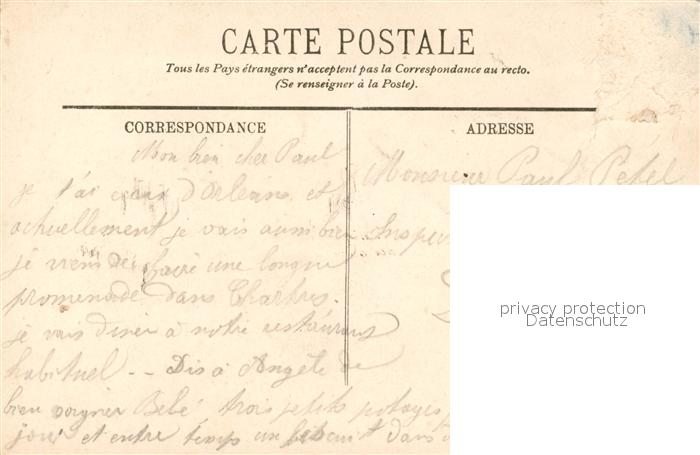 CARTE POSTALE
Tous les Pays étrangers n'acceptent pas la Correspondance au recto.
(Se renseigner à la Poste).
CORRESPONDANCE
ADRESSE
Mon bien cher Paul
je t'ai d'Orléans et
actuellement je vais aussi bien
je viens de faire une longue
promenade dans Chartres.
je vais diner à notre restaurant
habituel -- Dis à Angèle de
bien soigner Bébé, trois petits potages
jour et entre temps un biscuit dans
Monsieur Paul Petel
Inspec
privacy protection
Datenschutz